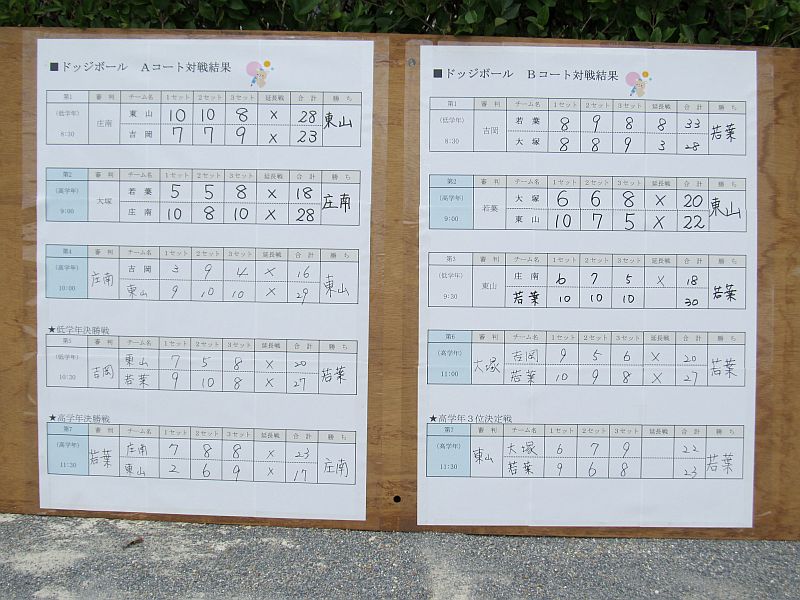 ■ドッジボール Aコート対戦結果
第1 審判 チーム名 1セット 2セット 3セット 延長戦 合計 勝ち
(低学年) 8:30 庄南 東山 10 10 8 × 28 東山
吉岡 7 7 9 × 23
第2 審判 チーム名 1セット 2セット 3セット 延長戦 合計 勝ち
(高学年) 9:00 大塚 若葉 5 5 8 × 18 庄南
庄南 10 8 10 × 28
第4 審判 チーム名 1セット 2セット 3セット 延長戦 合計 勝ち
(高学年) 10:00 庄南 吉岡 3 9 4 × 16 東山
東山 9 10 10 × 29
★低学年決勝戦
第5 審判 チーム名 1セット 2セット 3セット 延長戦 合計 勝ち
(低学年) 10:30 吉岡 東山 7 5 8 × 20 若葉
若葉 9 10 8 × 27
★高学年決勝戦
第7 審判 チーム名 1セット 2セット 3セット 延長戦 合計 勝ち
(高学年) 11:30 若葉 庄南 7 8 8 × 23 庄南
東山 2 6 9 × 17
■ドッジボール Bコート対戦結果
第1 審判 チーム名 1セット 2セット 3セット 延長戦 合計 勝ち
(低学年) 8:30 吉岡 若葉 8 9 8 8 33 若葉
大塚 8 8 9 3 28
第2 審判 チーム名 1セット 2セット 3セット 延長戦 合計 勝ち
(高学年) 9:00 若葉 大塚 6 6 8 × 20 東山
東山 10 7 5 × 22
第3 審判 チーム名 1セット 2セット 3セット 延長戦 合計 勝ち
(低学年) 9:30 東山 庄南 6 7 5 × 18 若葉
若葉 10 10 10 30
第6 審判 チーム名 1セット 2セット 3セット 延長戦 合計 勝ち
(高学年) 11:00 大塚 吉岡 9 5 6 × 20 若葉
若葉 10 9 8 × 27
★高学年3位決定戦
第7 審判 チーム名 1セット 2セット 3セット 延長戦 合計 勝ち
(高学年) 11:30 東山 大塚 6 7 9 22 若葉
若葉 9 6 8 23